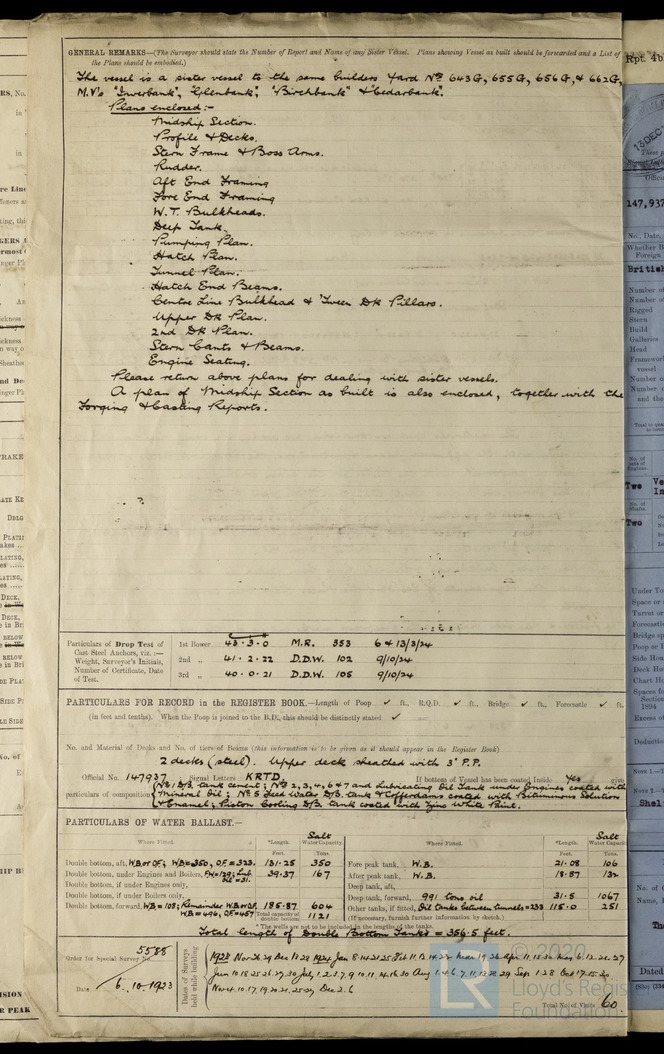 GENERAL REMARKS—(The Surveyor should state the Number of Report and Name of any Sister Vessel. Plans showing Vessel as built should be forwarded and a List of
the Plans should be embodied.)
The vessel is a sister vessel to the same builders Yard Nos 643G, 655G, 656G, & 662G,
M.V's "Inverbank", "Glenbank", "Birchbank" & "Cedarbank".
Plans enclosed:-
Midship Section.
Profile & Decks.
Stern Frame & Boss Arms.
Rudder.
Aft End Framing
Fore End Framing
W.T. Bulkheads.
Deep Tank.
Pumping Plan.
Hatch Plan.
Tunnel Plan.
Hatch End Beams.
Centre Line Bulkhead & 'Tween Dk Pillars.
Upper Dk Plan.
2nd Dk Plan.
Stern Cants & Beams.
Engine Seating.
Please return above plans for dealing with sister vessels.
A plan of Midship Section as built is also enclosed, together with the
Forging & Casting Reports.
Particulars of Drop Test of
Cast Steel Anchors, viz.:—
Weight, Surveyor's Initials,
Number of Certificate, Date
of Test.
1st Bower 43.3.0 M.R. 353 6 & 13/3/24
2nd „ 41.2.22 D.D.W. 102 9/10/24
3rd „ 40.0.21 D.D.W. 105 9/10/24
PARTICULARS FOR RECORD in the REGISTER BOOK.—Length of Poop ✓ ft., R.Q.D. ✓ ft., Bridge ✓ ft., Forecastle ✓ ft.
(in feet and tenths). When the Poop is joined to the B.D., this should be distinctly stated ✓
No. and Material of Decks and No. of tiers of Beams (this information is to be given as it should appear in the Register Book)
2 decks (steel). Upper deck sheathed with 3" P.P.
Official No. 147937 Signal Letters KRTD If bottom of Vessel has been coated Inside Yes give
particulars of composition (No 1 D/B tank cement; Nos 2, 3, 4, 6 & 7 and Lubricating Oil Tank under Engines coated with
Mineral Oil; No 5 Feed Water D/B tank & Cofferdams coated with Bituminous Solution
& Enamel; Piston Cooling D/B tank coated with Zinc White Paint.
PARTICULARS OF WATER BALLAST.—
Where Fitted. *Length. Feet. Salt Water Capacity. Tons.
Double bottom, aft, WB or OF; WB=350, OF=323. 131.25 350
Double bottom, under Engines and Boilers, FW=129; Lub Oil=31. 39.37 167
Double bottom, if under Engines only,
Double bottom, if under Boilers only,
Double bottom, forward, WB=108; Remainder WB or OF, 185.87 604
WB=496, OF=457 Total capacity of double bottom 1121
Where Fitted. *Length. Feet. Salt Water Capacity. Tons.
Fore peak tank, W.B. 21.08 106
After peak tank, W.B. 18.87 132
Deep tank, aft,
Deep tank, forward, 991 tons oil 31.5 1067
Other tanks, if fitted, Oil tanks between tunnels=233 115.0 251
(If necessary, furnish further information by sketch.)
* The wells are not to be included in the lengths of the tanks.
Total length of Double Bottom Tanks = 356.5 feet.
Order for Special Survey No. 5588
Date 6.10.1923
Dates of Surveys held while building
Total No. of Visits 60
© 2020
Lloyd's Register
Foundation
Rpt. 4b
13 DEC
147,937
British
Two
Two